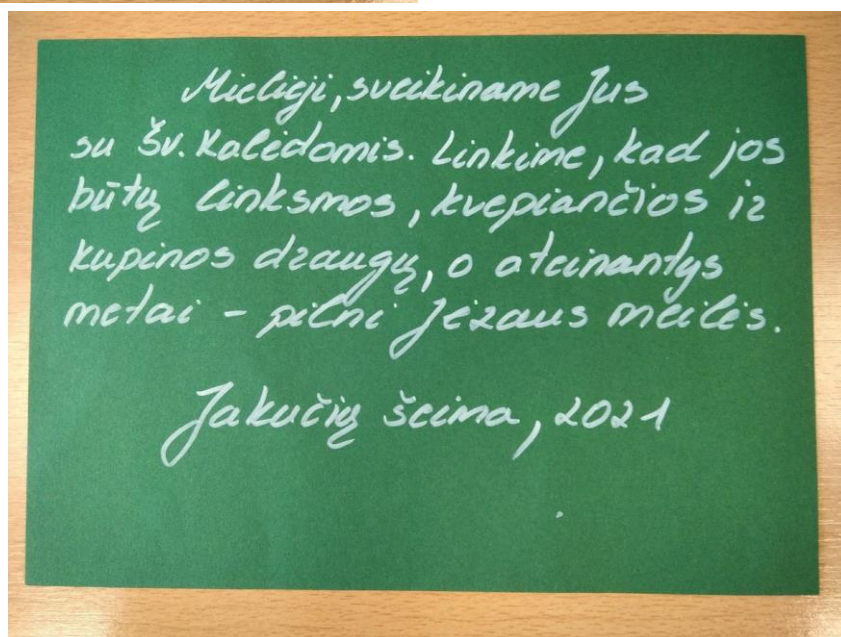 Mielieji, sveikiname Jus
su Šv. Kalėdomis. Linkime, kad jos
būtų linksmos, kvepiančios ir
kupinos draugų, o ateinantys
metai - pilni Jėzaus meilės.
Jakučių šeima, 2021